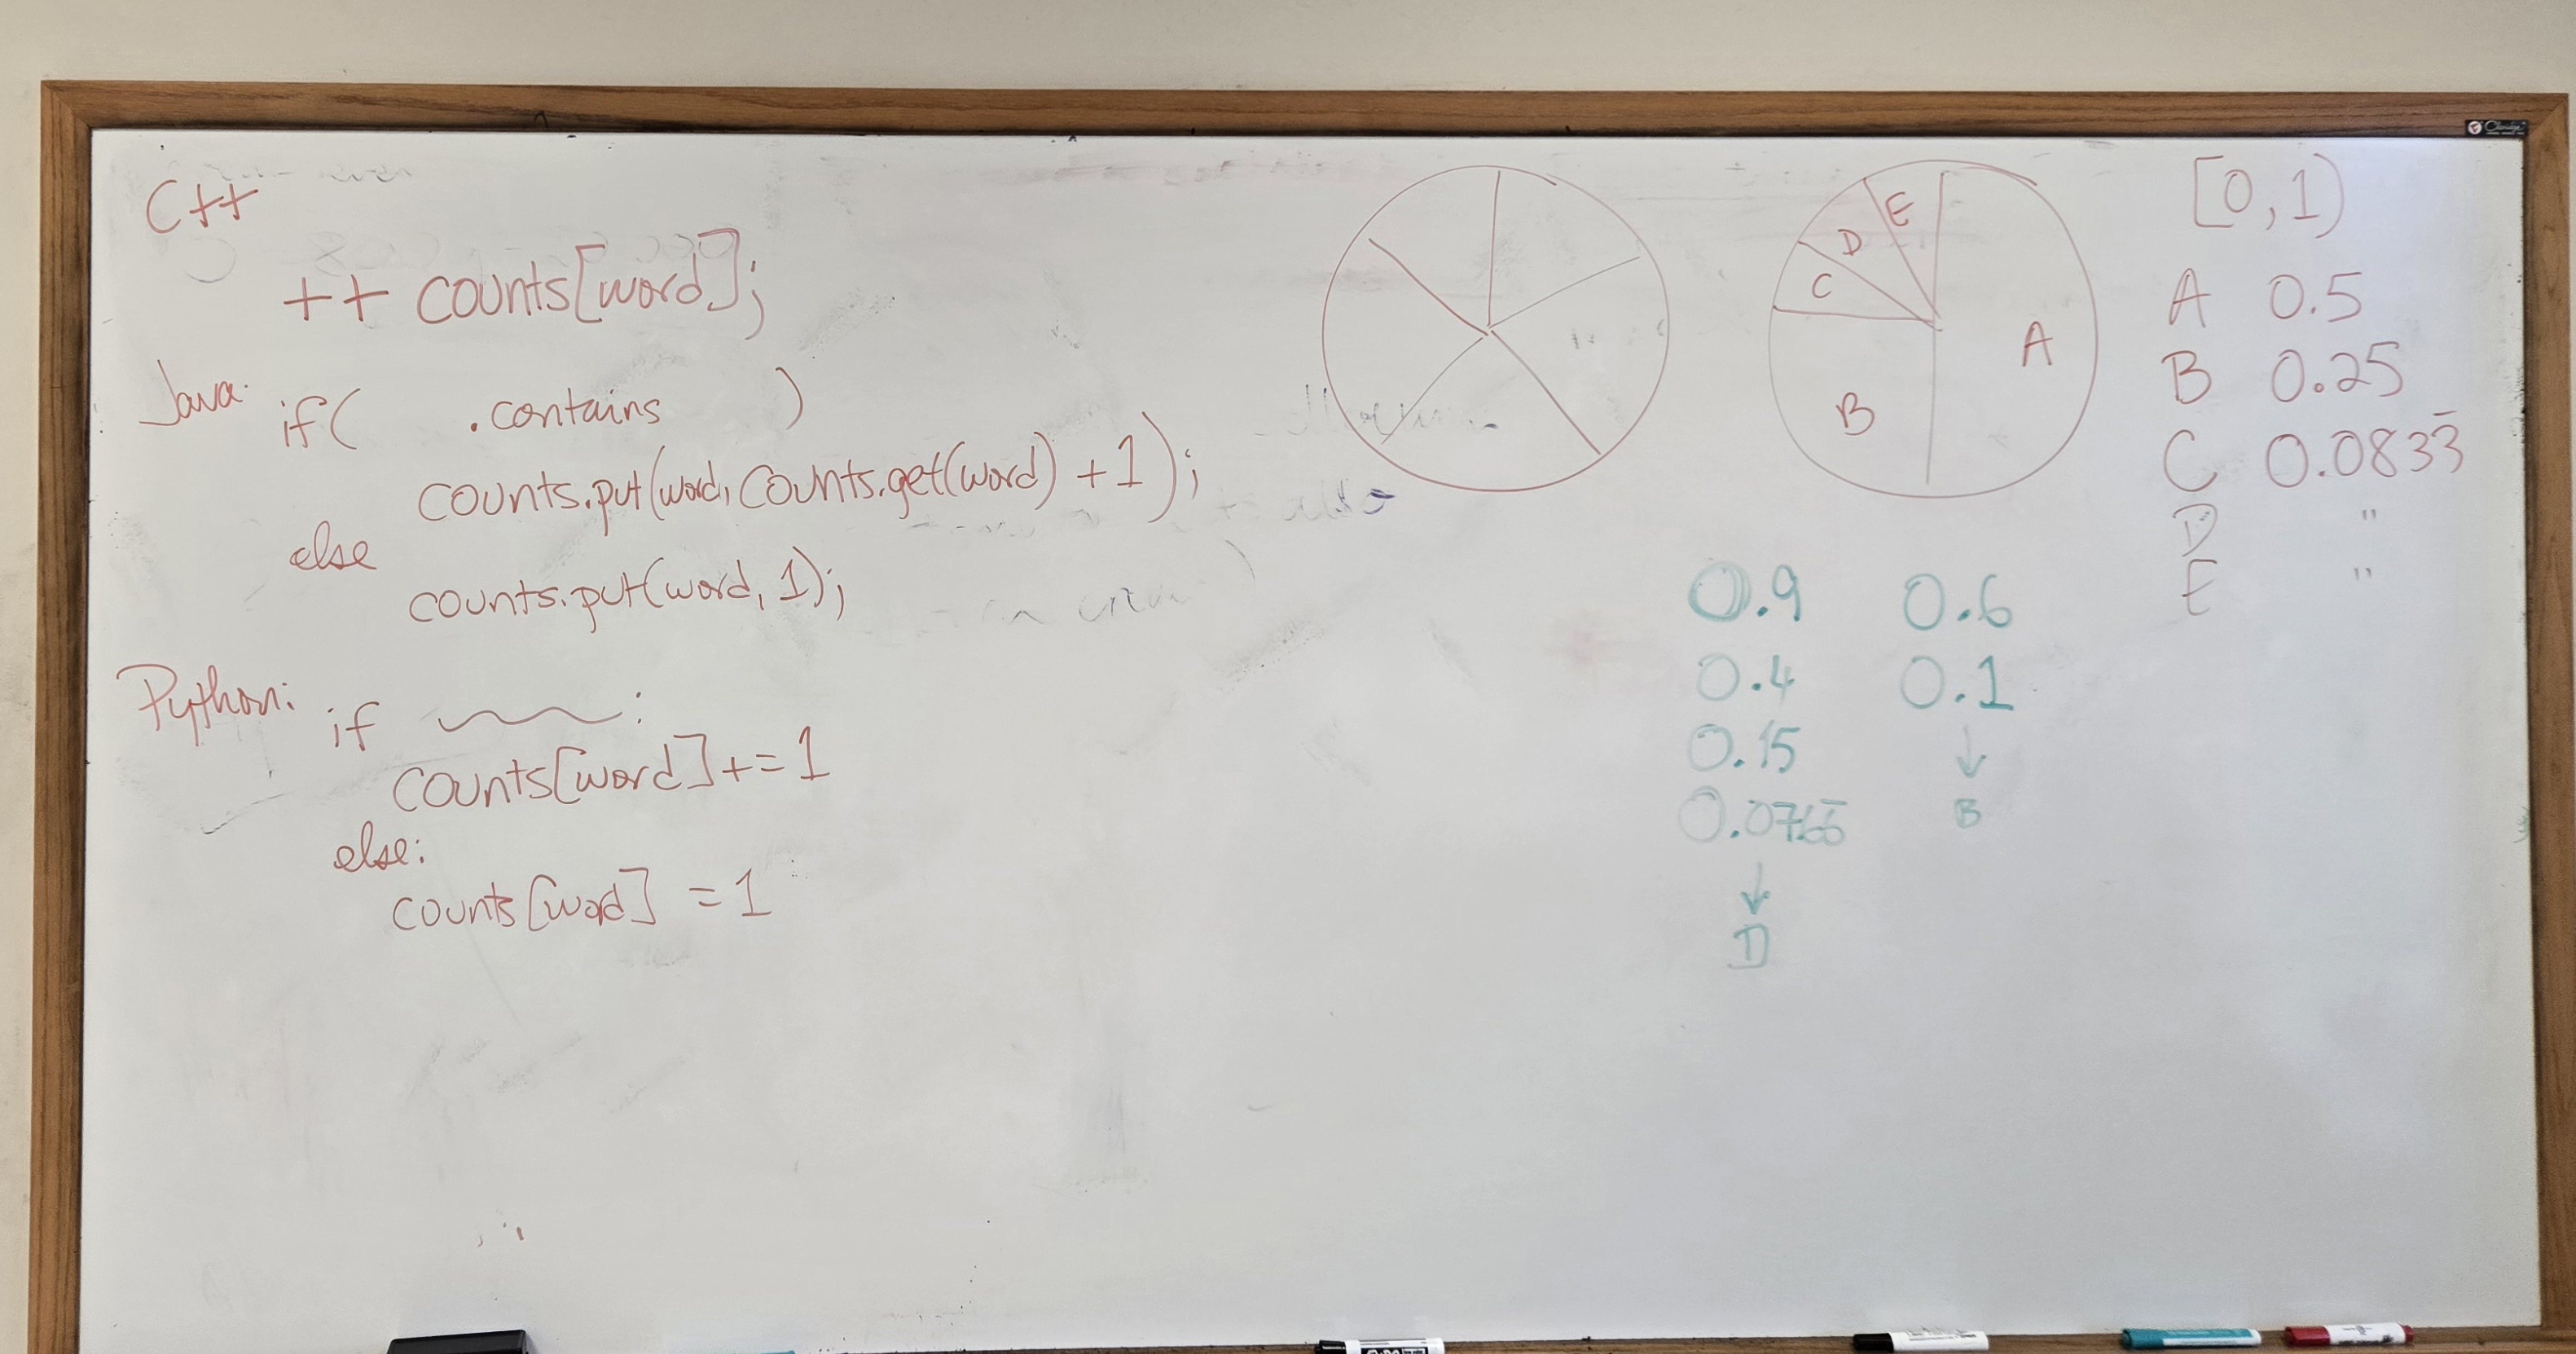 C++
++ counts[word];
Java:
if( .contains )
counts.put(word, counts.get(word) + 1);
else
counts.put(word, 1);
Python:
if ~~~:
counts[word] += 1
else:
counts[word] = 1
E
D
C
A
B
[0,1)
A 0.5
B 0.25
C 0.0833̅
D "
E "
0.9 0.6
0.4 0.1
0.15 ↓
0.0766̅ B
↓
D